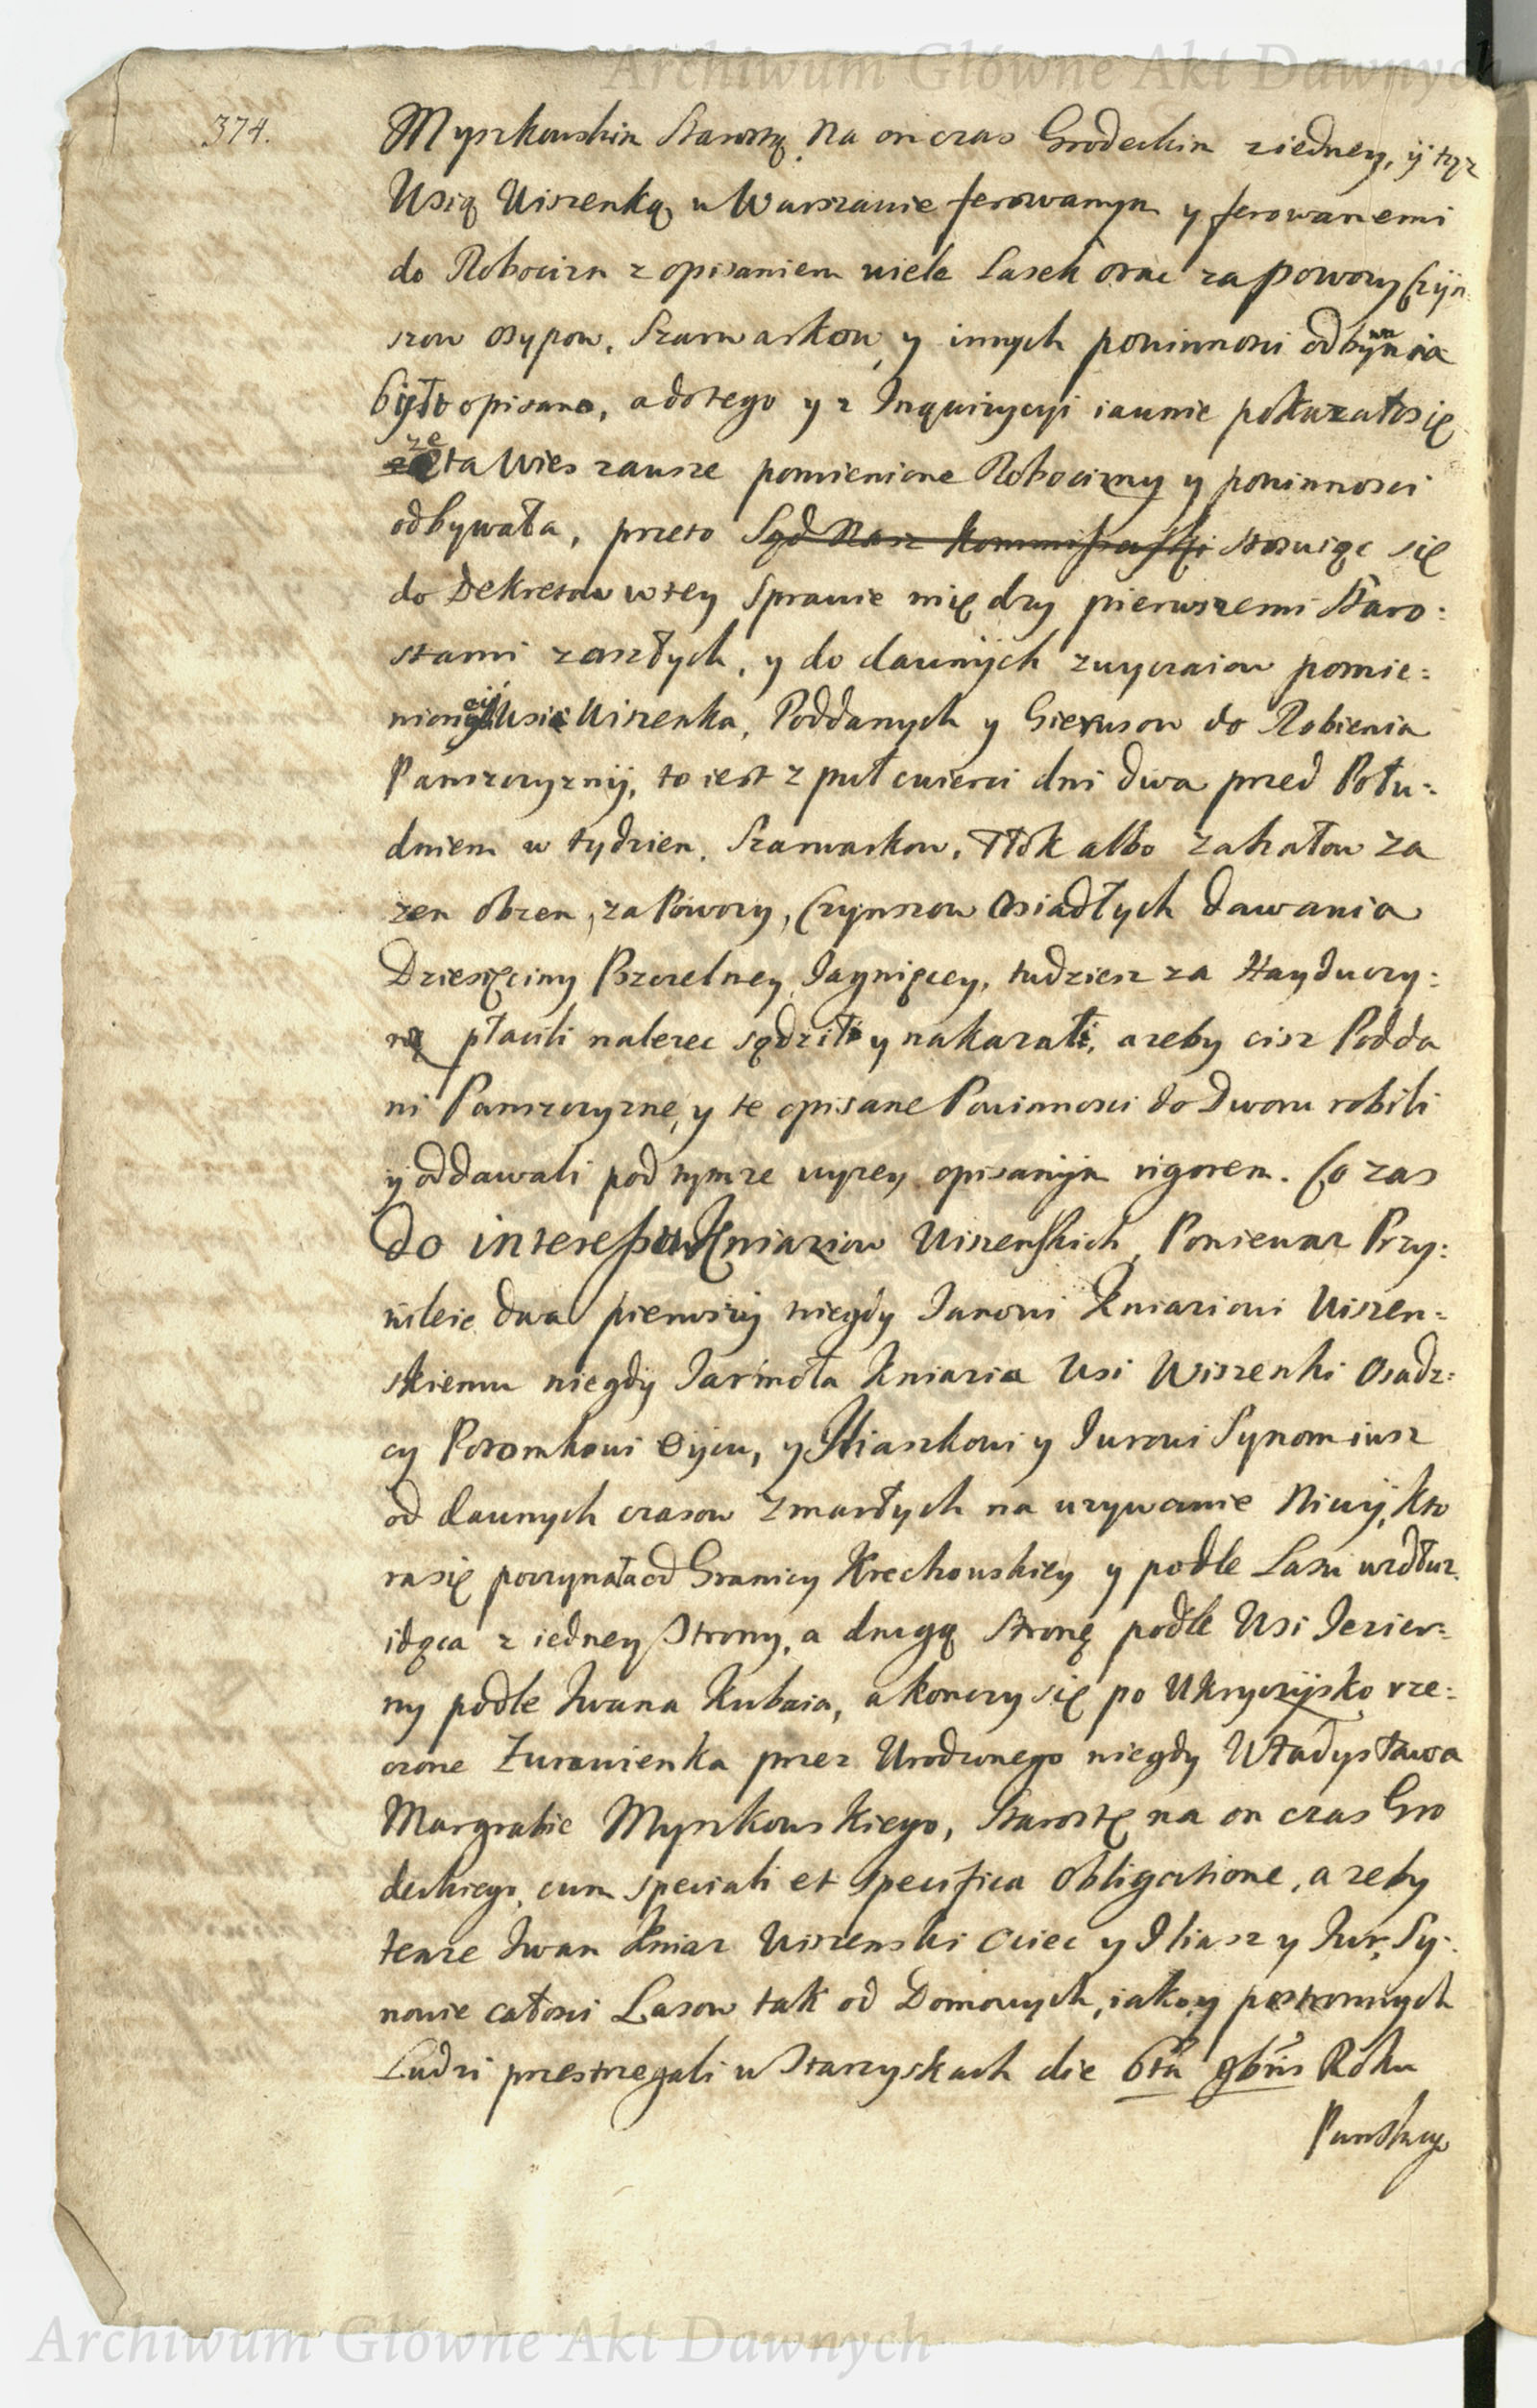 Archiwum Główne Akt Dawnych
374.
Myszkowskim Starostą Na on czas Grodeckim z iedney, y tąż
Wsią Wiszenką w Warszawie ferowanym y ferowanemi
do Robocizn z opisaniem wiele Lasek orac za powozy Czyn
szow osypow, Szarwarkow, y innych powinnosci odbywania
było opisano, a do tego y z Inquizycyi iawnie pokazało się
że ta Wies zawsze pomienione Robocizny y powinnosci
odbywała, przeto Sąd Nasz Kommissarski stosuiąc się
do Dekretow w tey Sprawie między pierwszemi Staro:
stami zaszłych, y do dawnych zwyczaiow pomie:
nioney Wsi Wiszenka, Poddanych y Giewusow do Robienia
Panszczyzny, to iest z puł cwierci dni dwa przed Połu:
dniem w tydzien, Szarwarkow, Tłok albo Zakałow za
żen obżen, za Powozy, Czynszow Osiadłych dawania
Dziesięciny Pszczelney Jagnięcey, tudziesz za Hayduczy:
nę płacili należec sądzili y nakazali, ażeby cisz Podda
ni Panszczyzne, y te opisane Powinnosci do Dworu robili
y oddawali pod tymże wyżey opisanym rigorem. Co zas
do interessow Kniaziow Wiszenskich, Poniewaz Przy:
wileie dwa pierwszy niegdy Janowi Kniaziowi Wiszen:
skiemu niegdy Jarmoła Kniazia Wsi Wiszenki Osadz:
cy Potomkowi Oycu, y Iliaszkowi y Jurowi Synom iusz
od dawnych czasow Zmarłych na używanie Niwy, kto
ra się poczynała od Granicy Krechowskiey y podle Lasu wzdłuz
idąca z iedney Strony, a drugą stronę podle Wsi Jezier:
ny podle Iwana Kubaia, a konczy się po Ukryczysko rze:
czone Zurawienka przez Urodzonego niegdy Władysława
Margrabie Myszkowskiego, Starostę na on czas Gro
deckiego, cum speciali et specifica obligatione, a żeby
tenze Iwan Kniaz Wiszenski Ociec y Iliasz y Jur, Sy:
nowie całosci Lasow tak od Domowych, iako y postronnych
Ludzi przestrzegali w Starzyskach die 6ta 9bris Roku
Panskiego
Archiwum Główne Akt Dawnych